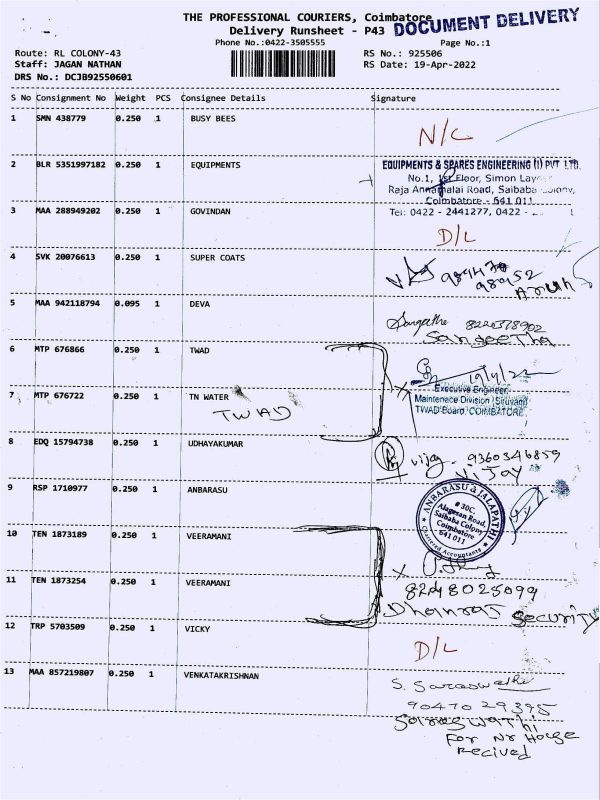 THE PROFESSIONAL COURIERS, Coimbatore
DOCUMENT DELIVERY
Delivery Runsheet - P43
Phone No.:0422-3505555
Page No.:1
Route: RL COLONY-43
RS No.: 925506
Staff: JAGAN NATHAN
RS Date: 19-Apr-2022
DRS No.: DCJB92550601
S No Consignment No Weight PCS Consignee Details Signature
1 SMN 438779 0.250 1 BUSY BEES
N/C
2 BLR 5351997182 0.250 1 EQUIPMENTS
EQUIPMENTS & SPARES ENGINEERING (I) PVT. LTD.
No.1, 1st Floor, Simon
Raja Annamalai Road, Saibaba Colony,
Coimbatore - 641 011
Tel: 0422 - 2441277, 0422 -
3 MAA 288949202 0.250 1 GOVINDAN
D/L
4 SVK 20076613 0.250 1 SUPER COATS
Arun
5 MAA 942118794 0.095 1 DEVA
Sangeetha 8220378902
Sangeetha
6 MTP 676866 0.250 1 TWAD
19/4/22
Executive Engineer
Maintenece Division Siruvani
TWAD Board, COIMBATORE
7 MTP 676722 0.250 1 TN WATER
TWAD
8 EDQ 15794738 0.250 1 UDHAYAKUMAR
vijay 9360346859
Vijay
9 RSP 1710977 0.250 1 ANBARASU
ANBARASU & JALAPATHI
# 30C,
Alagesan Road,
Saibaba Colony
Coimbatore
641 011
Chartered Accountants
10 TEN 1873189 0.250 1 VEERAMANI
11 TEN 1873254 0.250 1 VEERAMANI
8248025099
Dhanraj Security
12 TRP 5703509 0.250 1 VICKY
D/L
13 MAA 857219807 0.250 1 VENKATAKRISHNAN
S. Saraswathi
90470 29395
Saraswathi
For Nr House
Recived